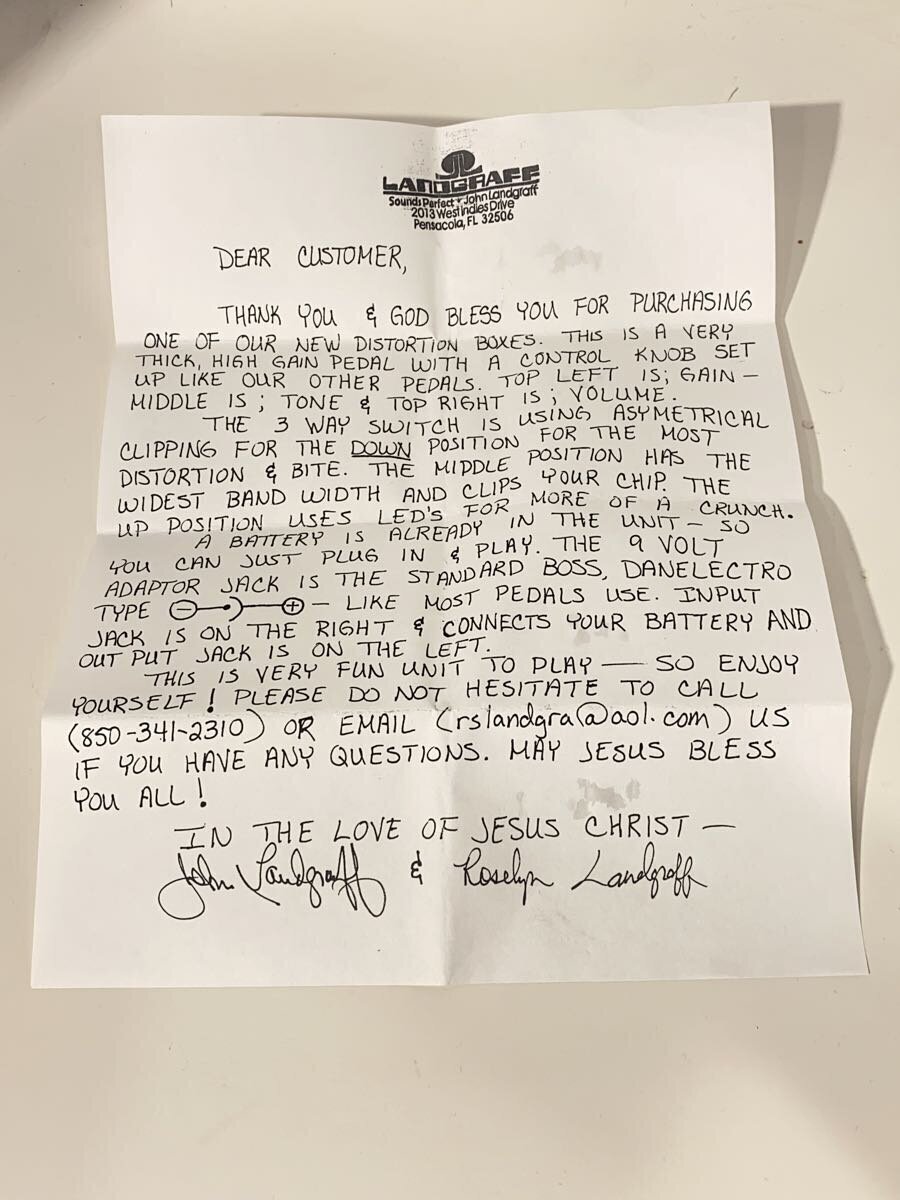 LANDGRAFF
Sounds Perfect • John Landgraff
2013 West Indies Drive
Pensacola, FL 32506
DEAR CUSTOMER,
THANK YOU & GOD BLESS YOU FOR PURCHASING
ONE OF OUR NEW DISTORTION BOXES. THIS IS A VERY
THICK, HIGH GAIN PEDAL WITH A CONTROL KNOB SET
UP LIKE OUR OTHER PEDALS. TOP LEFT IS; GAIN —
MIDDLE IS; TONE & TOP RIGHT IS; VOLUME.
THE 3 WAY SWITCH IS USING ASYMETRICAL
CLIPPING FOR THE DOWN POSITION FOR THE MOST
DISTORTION & BITE. THE MIDDLE POSITION HAS THE
WIDEST BAND WIDTH AND CLIPS YOUR CHIP. THE
UP POSITION USES LED'S FOR MORE OF A CRUNCH.
A BATTERY IS ALREADY IN THE UNIT — SO
YOU CAN JUST PLUG IN & PLAY. THE 9 VOLT
ADAPTOR JACK IS THE STANDARD BOSS, DANELECTRO
TYPE — LIKE MOST PEDALS USE. INPUT
JACK IS ON THE RIGHT & CONNECTS YOUR BATTERY AND
OUT PUT JACK IS ON THE LEFT.
THIS IS VERY FUN UNIT TO PLAY — SO ENJOY
YOURSELF! PLEASE DO NOT HESITATE TO CALL
(850-341-2310) OR EMAIL (rslandgra@aol.com) US
IF YOU HAVE ANY QUESTIONS. MAY JESUS BLESS
YOU ALL!
IN THE LOVE OF JESUS CHRIST —
John Landgraff & Roselyn Landgraff